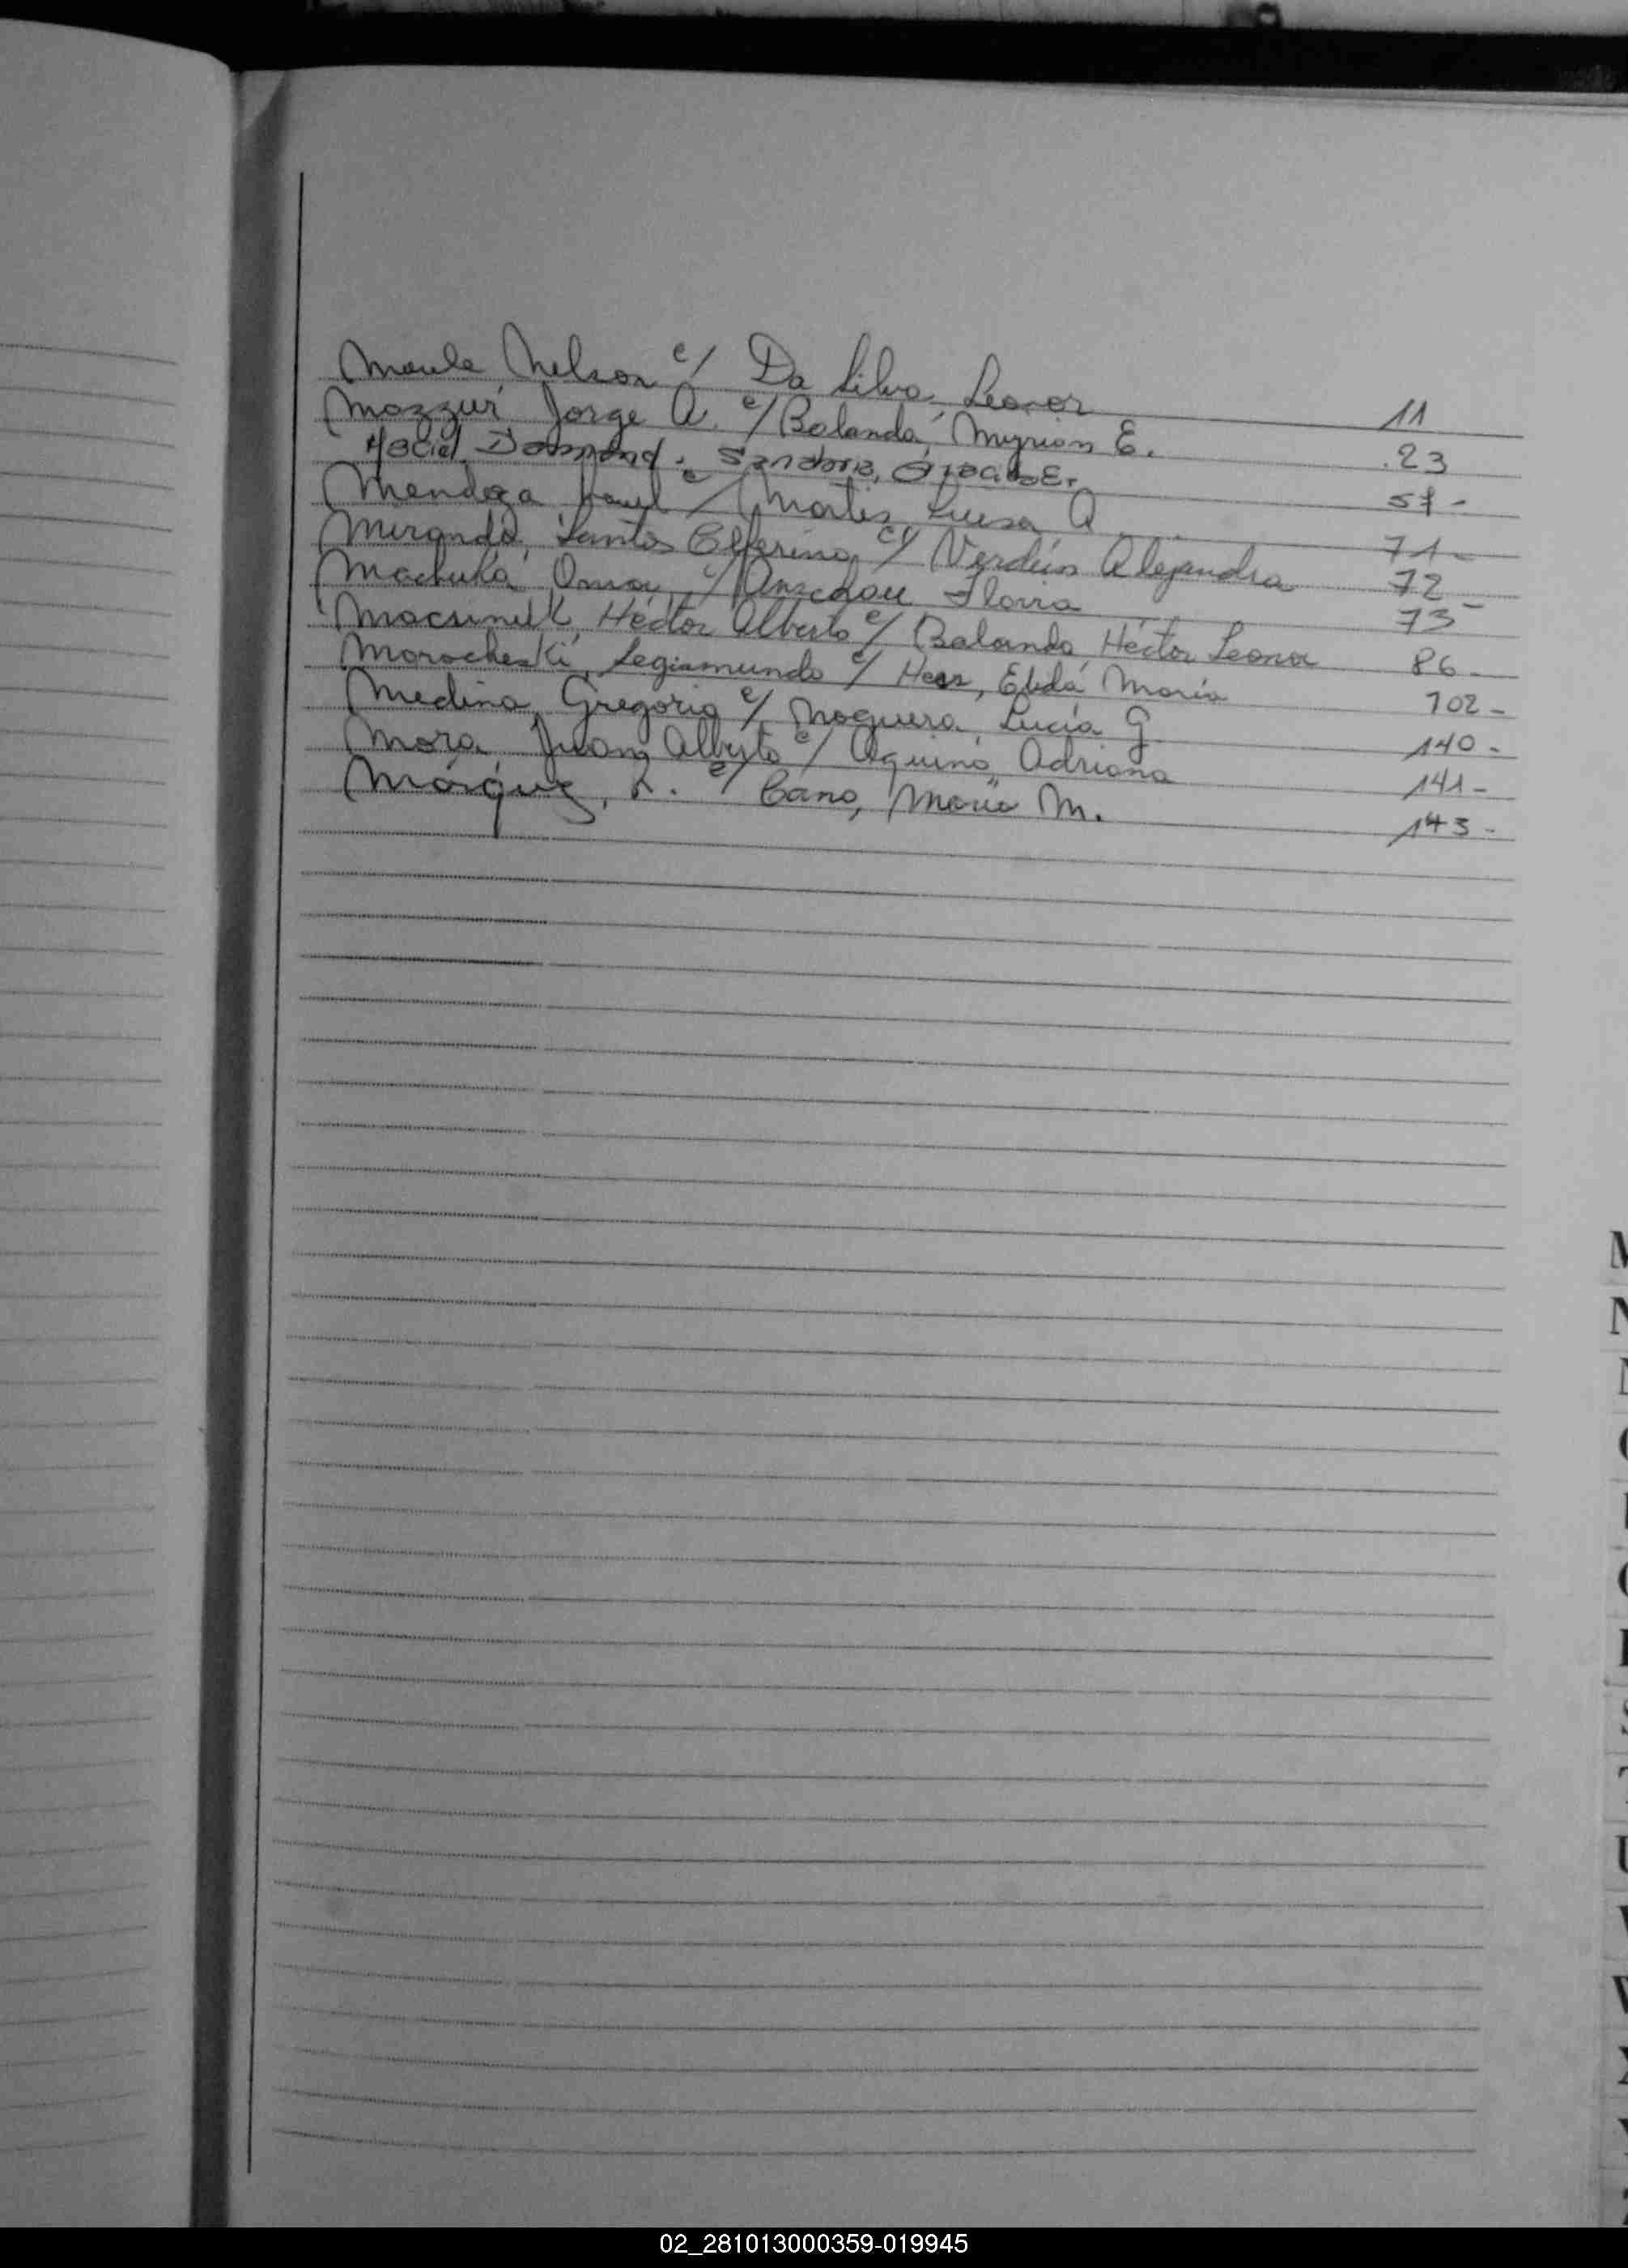 Maule, Nelson c/ Da Silva, Leonor 11
Mazzur, Jorge A. c/ Balanda, Myrian E. 23
Maciel, c Sandoria, E. 57-
Mendoza c/ Martis, Luisa Q 71-
Miranda, Santos Celferino c/ Verdún Alejandra 72
Machuka, Omar c/ Anschau Floria 73-
Hector Alberto c/ Balanda, Héctor Leonor 86-
Morocheski, Segismundo c/ Hess, Elida María 102-
Medina, Gregorio c/ Noguera, Lucía G 140-
Mora, Juan Alberto c/ Aquino Adriana 141-
Márquez, R. c/ Cano, María M. 143-
M
N
S
T
U
V
W
X
02_281013000359-019945